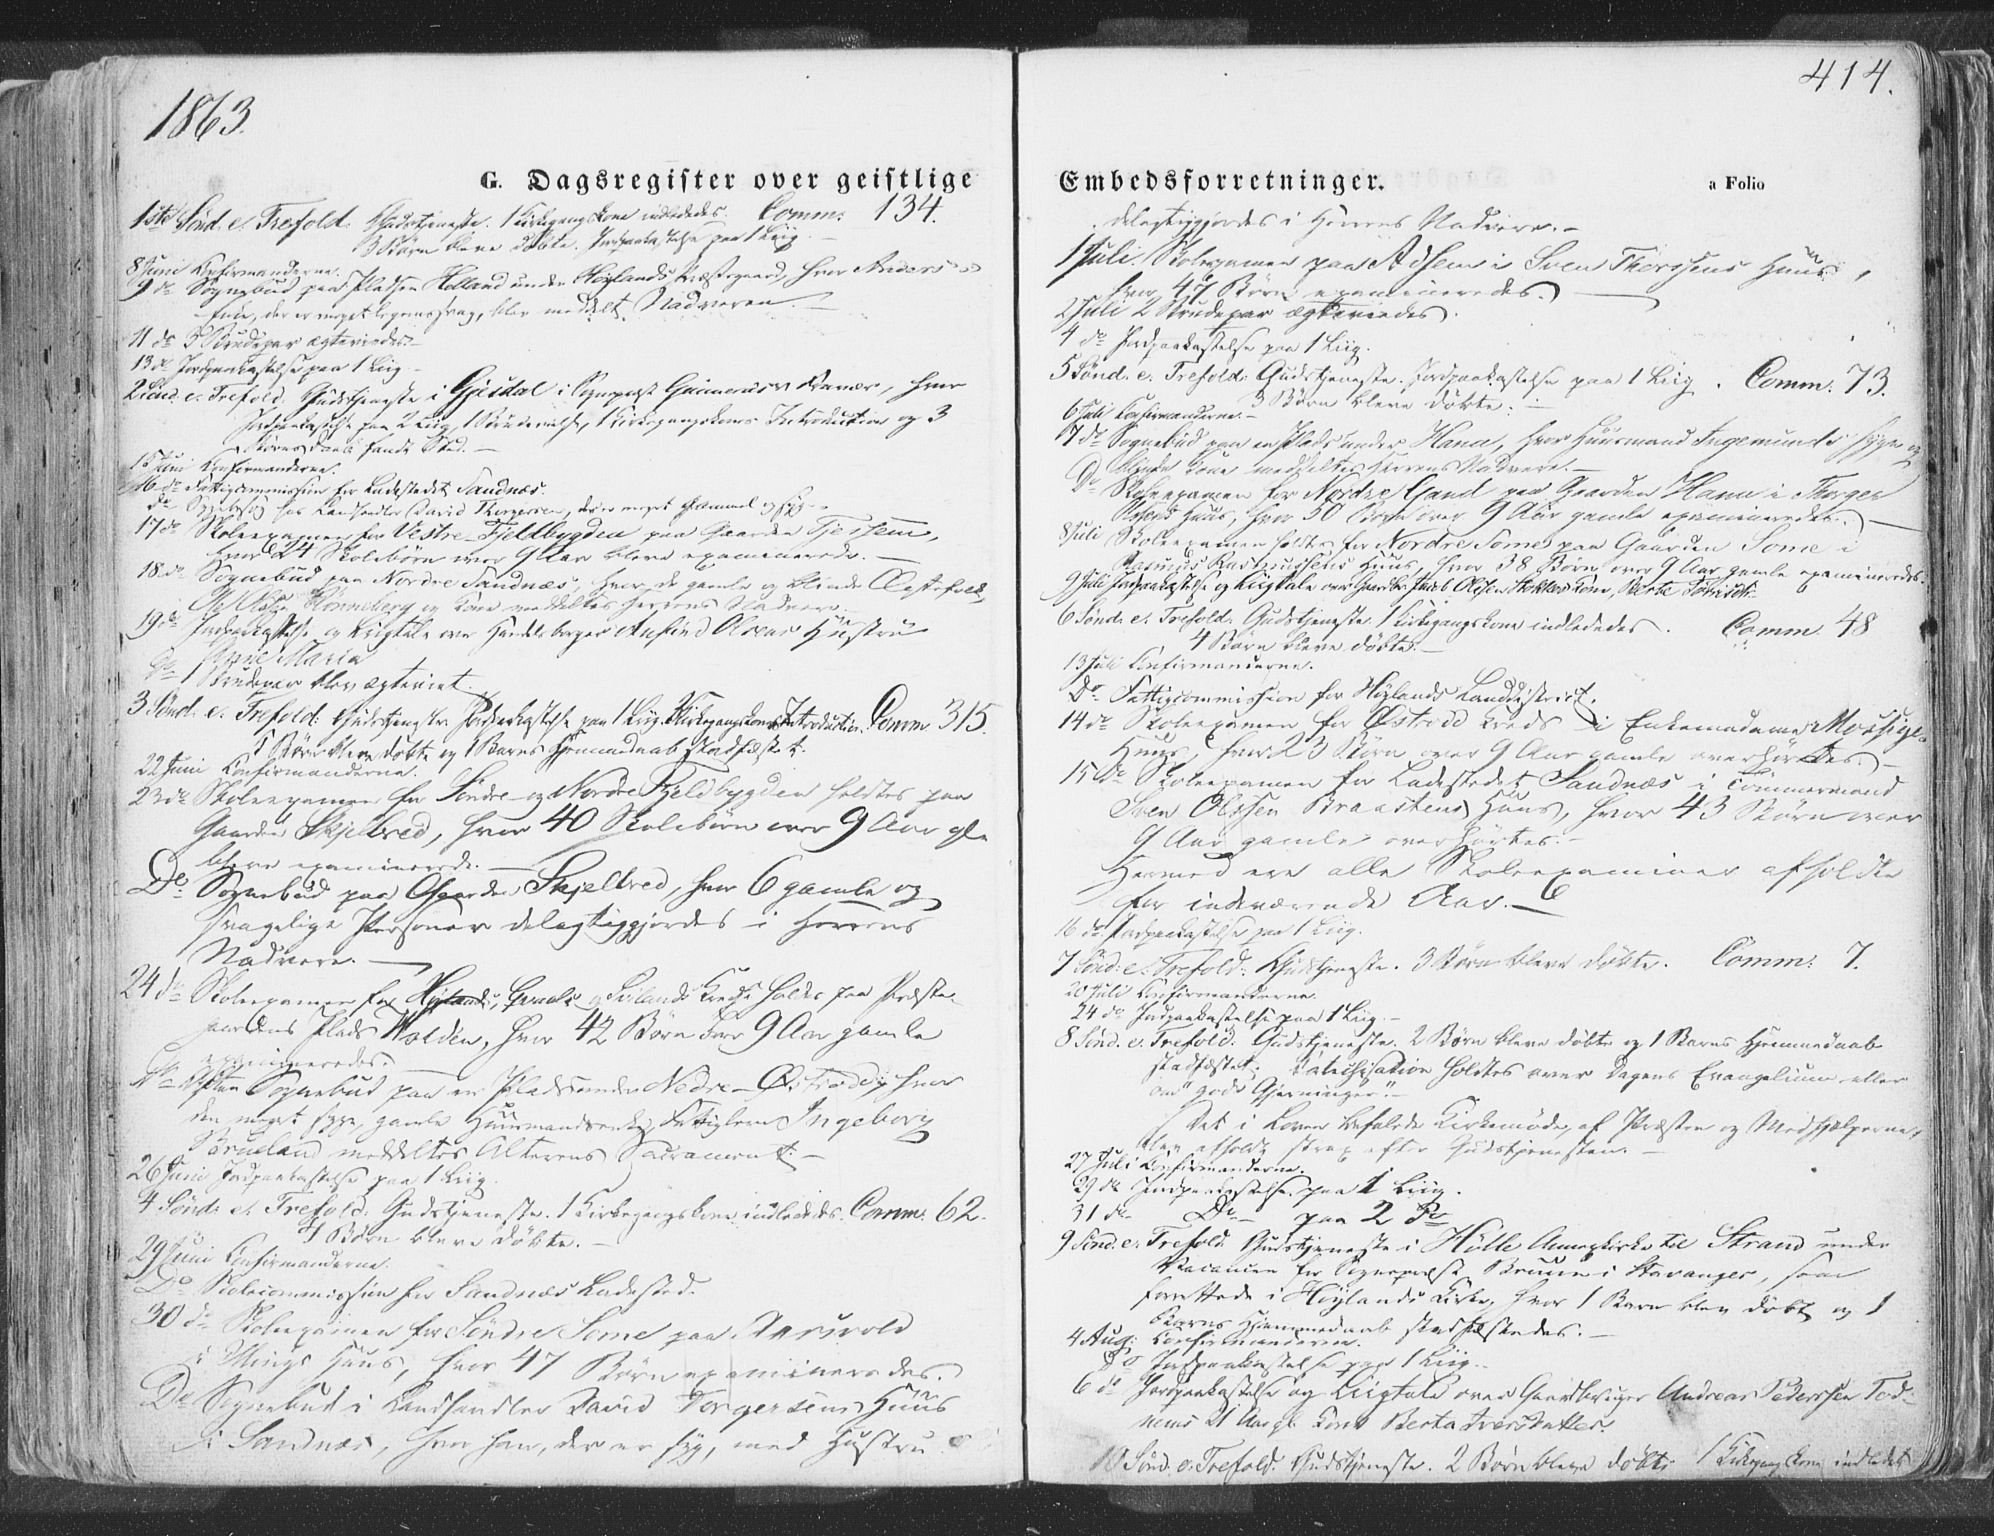 1863.
G. Dagsregister over geistlige
1ste Sönd. e. Trefold. Gudstjeneste. 1 Kirkegangskone indlededes. Comm: 134.
3 Börn bleve döbte. Jordpaakastelse paa 1 Liig.
8 Juni Confirmanderne.
9 do Sognebud paa Pladsen Holland under Höylands Præstegaard, hvor Anders
der er meget svag, blev meddelt Nadveren.
11 do 3 Brudepar ægteviedes.
13 do Jordpaakastelse paa 1 Liig
2 Sönd. e. Trefold. Gudstjeneste i Gjesdal i Sognepræst Gunnerus's Fravær, hvor
Jordpaakastelse paa 2 Liig, 1 Brudevielse, 1 Kirkegangskones Introduction og 3
Börns Daab fandt Sted.
15 Juni Confirmanderne.
16 do Fattigcommission for Ladestedet Sandnæs.
do Sygebesög hos Landhandler David Thorgersen, der er meget gammel og syg.
17 do Skoleexamen for Vestre Fjeldbygden paa Gaarden Tjessem,
hvor 24 Skolebörn over 9 Aar bleve examinerede.
18 do Sognebud paa Nordre Sandnæs, hvor de gamle og blinde Ægtefolk,
Rönneberg og Kone meddeltes Herrens Nadvere.
19 do Jordpaakastelse og Liigtale over Handelsborger Ansind Olsens Hustru
Anne Maria
Do 1 Brudepar blev ægteviet.
3 Sönd. e. Trefold: Gudstjeneste. Jordpaakastelse paa 1 Liig. Kirkegangskones Introduction. Comm. 315.
Börn bleve döbte og 1 Barns Hjemmedaab stadfæstet.
22 Juni Confirmanderne.
23 do Skoleexamen for Söndre- og Nordre Fjeldbygden holdtes paa
Gaarden Skjelbred, hvor 40 Skolebörn over 9 Aar gle
bleve examinerede.
Do Sognebud paa Gaarden Skjelbred, hvor 6 gamle og
svagelige Personer delagtiggjordes i Herrens
Nadvere.
24 do Skoleexamen for Höylands, og Kreds holdes paa Præste-
gaardens Plads Holden, hvor 42 Börn over 9 Aar gamle
examineredes.
Do Aften Sognebud paa en Plads under Nedre-Östraadt, hvor
den meget syge, gamle Huusmandsenke Ingeborg
Brueland meddeltes Alterens Sacrament.
26 Juni Jordpaakastelse paa 1 Liig.
4 Sönd: e. Trefold: Gudstjeneste. 1 Kirkegangskone indlededes. Comm. 62.
Börn bleve döbte.
29 Juni Confirmanderne.
Do Skolecommission for Sandnæs Ladested.
30 do Skoleexamen for Söndre Some paa Aarsvold
i Huus, hvor 47 Börn examineredes.
Do Sognebud i Landhandler David Torgersens Huus
i Sandnæs, hvor han, der er syg, med Hustru
414.
Embedsforretninger.
a Folio
delagtiggjordes i Herrens Nadvere.
1 Juli. Skoleexamen paa Adsem i Sven Thorssens Huus,
hvor 47 Börn examineredes.
2 Juli 2 Brudepar ægteviedes.
4 do Jordpaakastelse paa 1 Liig.
5 Sönd. e. Trefold: Gudstjeneste. Jordpaakastelse paa 1 Liig. Comm. 73.
3 Börn bleve döbte.
6 Juli Confirmanderne.
7 do Sognebud paa en Plads under Hana, hvor Huusmand Ingemunds syge og
blinde Kone meddeltes Herrens Nadvere.
Do Skoleexamen for Nordre Gand paa Gaarden Hana i Thorger
Huus, hvor 50 Börn over 9 Aar gamle examineredes.
8 Juli Skoleexamen holdtes for Nordre Some paa Gaarden Some i
Rasmus Rasmussens Huus, hvor 38 Börn over 9 Aar gamle examineredes.
9 Juli Jordpaakastelse og Liigtale over Gaardbr. Jacob Olssen Stokkes Kone, Berte
6 Sönd. e. Trefold. Gudstjeneste. 1 Kirkegangskone indlededes. Comm. 48
4 Börn bleve döbte.
13 Juli Confirmanderne.
Do Fattigcommission for Höylands Landdistrict.
14 do Skoleexamen for Östraad Kreds i Enkemadame Mossiges
Huus, hvor 23 Börn over 9 Aar gamle overhörtes.
15 do Skoleexamen for Ladestedet Sandnæs i Tömmermand
Sven Olssen Braastens Huus, hvor 43 Börn over
9 Aar gamle overhörtes.
Hermed ere alle Skoleexaminer afholdte
for indeværende Aar.
16 do Jordpaakastelse paa 1 Liig.
7 Sönd: e. Trefold: Gudstjeneste. 3 Börn bleve döbte. Comm: 7.
20 Juli Confirmanderne.
24 do Jordpaakastelse paa 1 Liig.
8 Sönd. e. Trefold: Gudstjeneste. 2 Börn bleve döbte og 1 Barns Hjemmedaab
stadfæstet. Catechisation holdtes over Dagens Evangelium eller
om "gode Gjerninger".
Det i Loven befalede Kirkemöde, af Præsten og Medhjælperne,
blev afholdt strax efter Gudstjenesten.
27 Juli Confirmanderne.
29 do Jordpaakastelse paa 1 Liig.
31 do Do paa 2 Do
9 Sönd. e. Trefold. Gudstjeneste i Hölle Annexkirke til Strand under
Vacancen for Sognepræst Bruun i Stavanger, som
forrettede i Höylands Kirke, hvor 1 Barn blev döbt og 1
Barns Hjemmedaab stadfæstedes.
4 Aug: Confirmanderne.
Do Jordpaakastelse paa 1 Liig.
6 do Jordpaakastelse og Liigtale over Gaardbruger Andreas Pederssen Tod-
nems 21 Aar gl. Kone Berta Iversdatter.
10 Sönd. e. Trefold. Gudstjeneste. 2 Börn bleve döbte 1 Kirkegangskone indledet